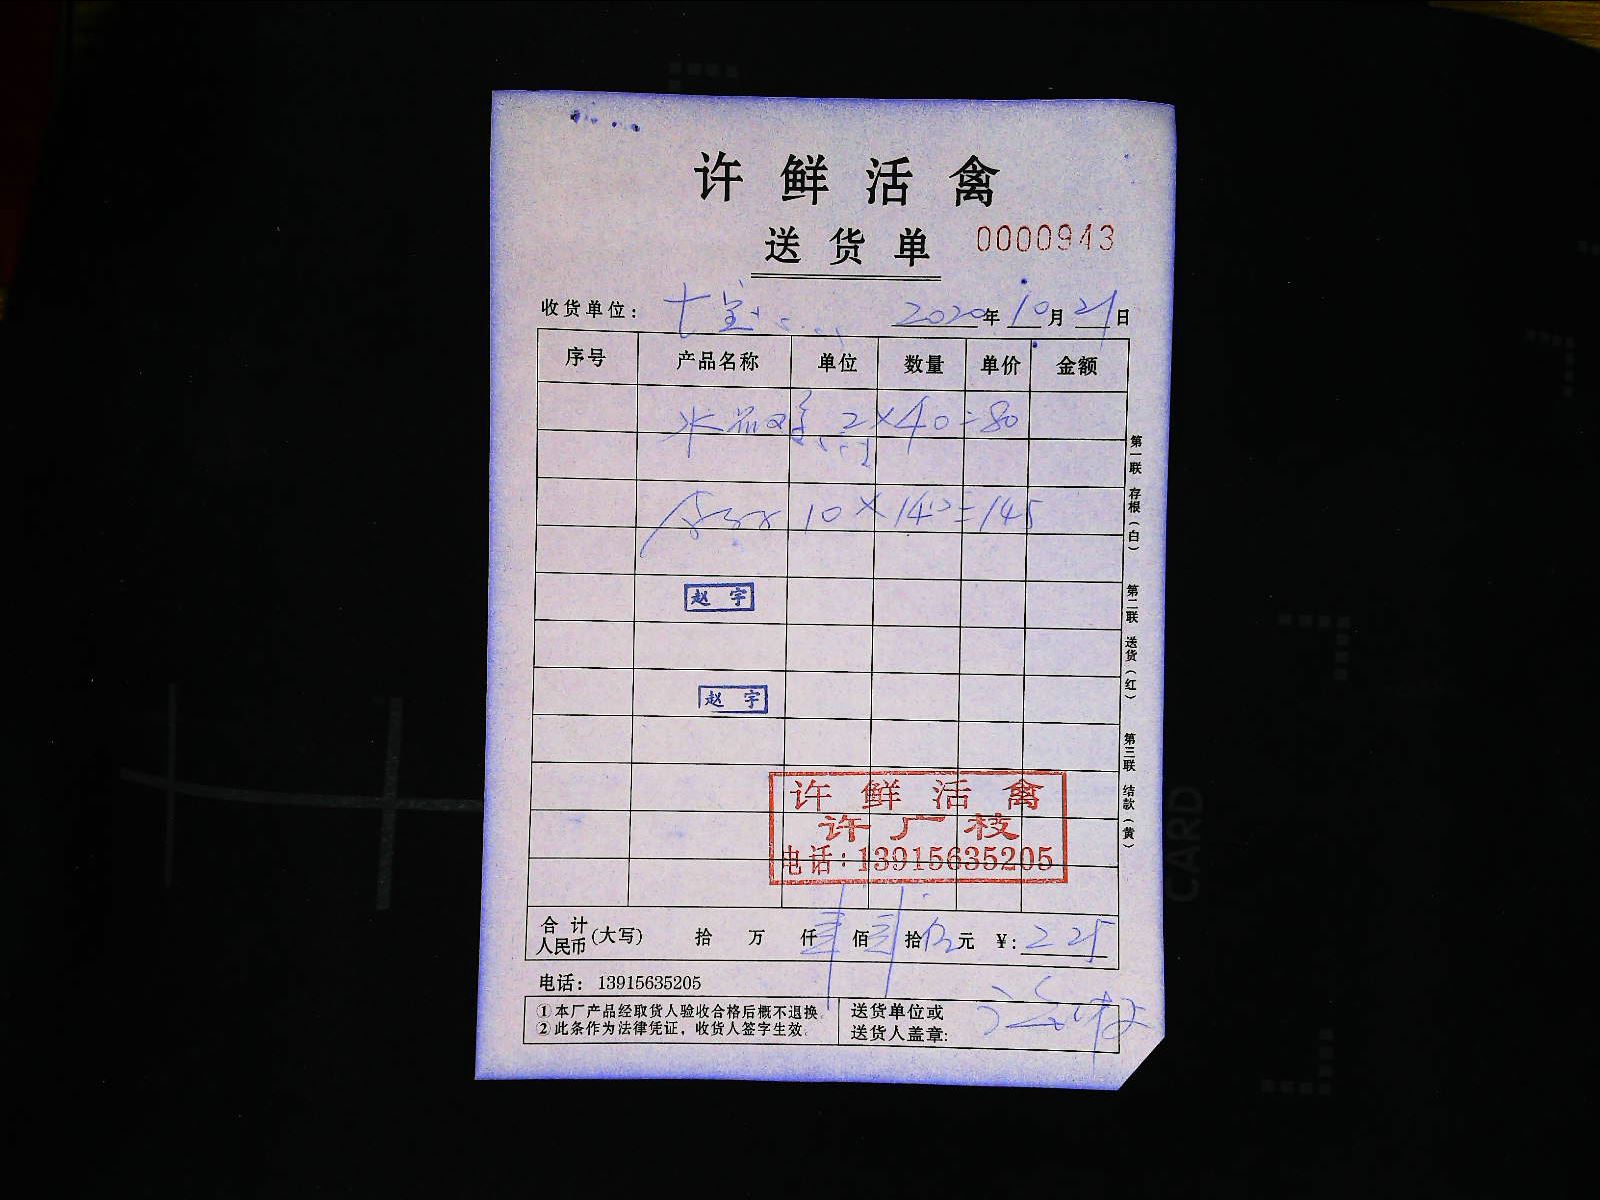 许鲜活禽
送货单 0000943
收货单位: 七宝 2020年10月21日
序号 产品名称 单位 数量 单价 金额
2×40=80
10×14.5=145
赵宇
赵宇
许鲜活禽
许广枝
电话:13915635205
合计人民币(大写) 拾 万 仟 佰 拾 元 ¥:225
电话: 13915635205
①本厂产品经取货人验收合格后概不退换。
②此条作为法律凭证,收货人签字生效。
送货单位或
送货人盖章:
第一联 存根(白)
第二联 送货(红)
第三联 结款(黄)
CARD